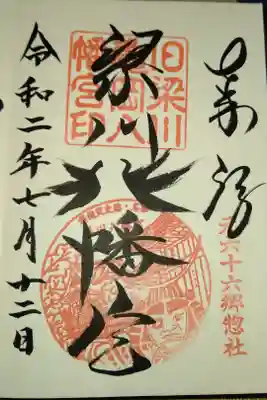 奉拝
六十六郷惣社
旧梁川
亀岡八
幡宮印
梁川八幡宮
令和二年七月十二日